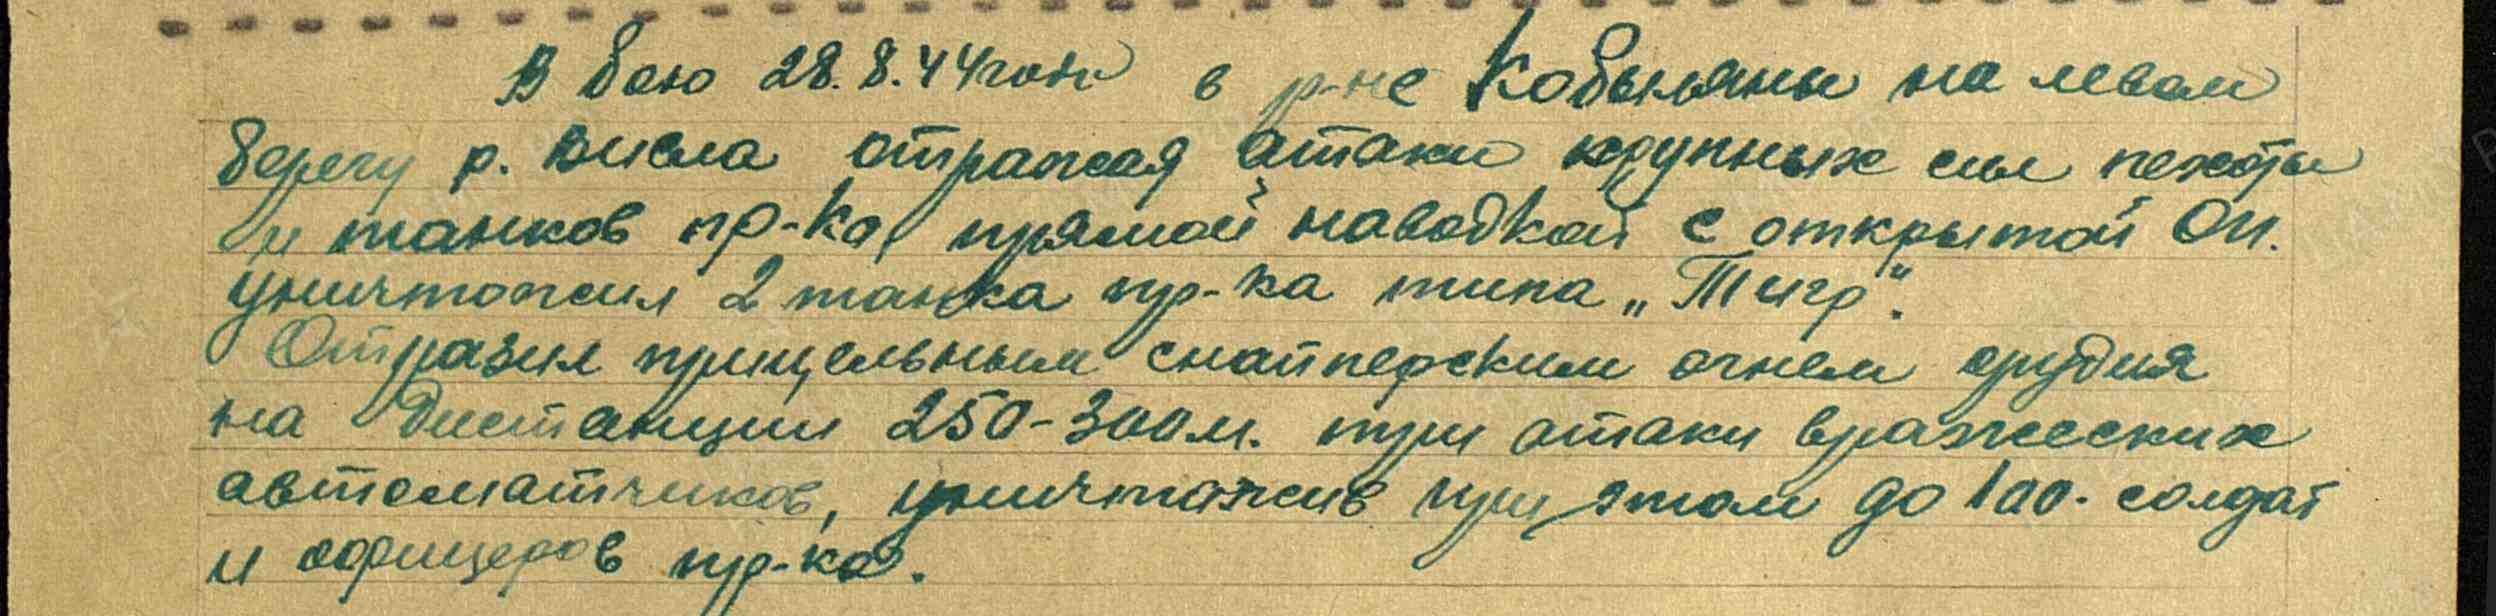 В бою 28.8.44 года в р-не Кобыляны на левом
берегу р. Висла отражая атаки крупных сил пехоты
и танков пр-ка, прямой наводкой с открытой ОП.
уничтожил 2 танка пр-ка типа „Тигр".
Отразил прицельным снайперским огнем орудия
на дистанции 250-300 м. при атаки вражеских
автоматчиков, уничтожив при этом до 100. солдат
и офицеров пр-ка.